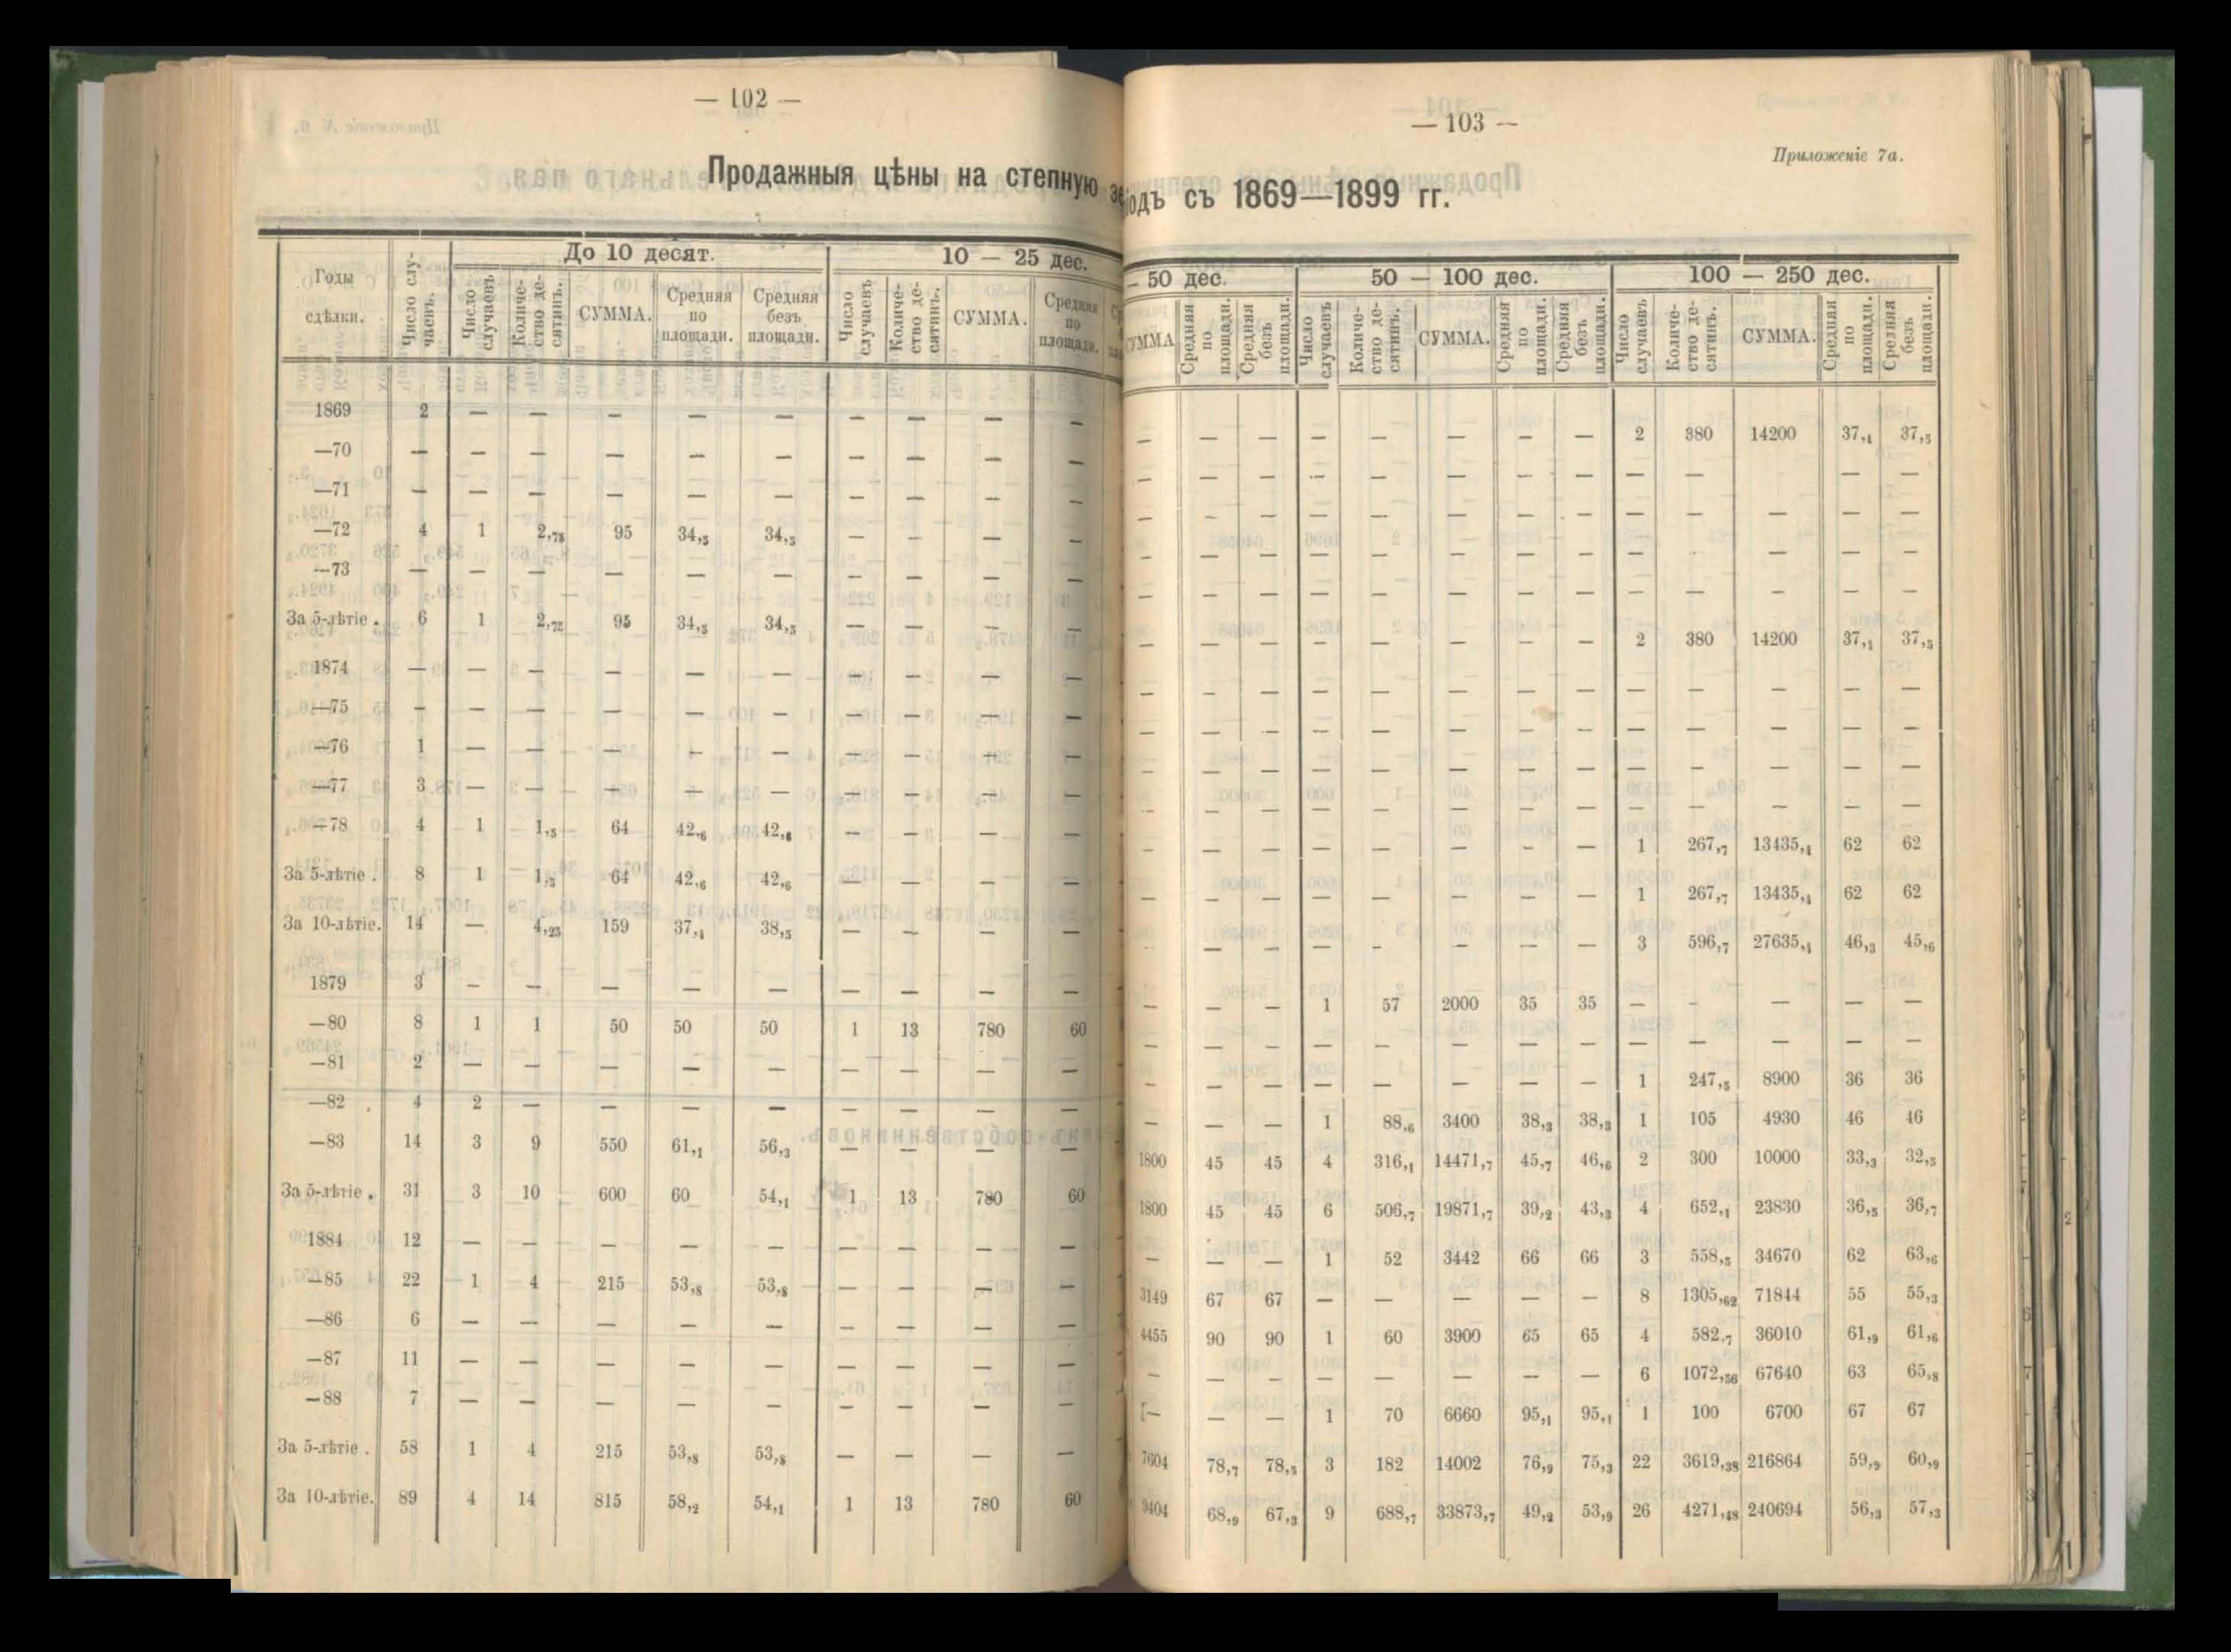 — 102 —
Продажныя цѣны на степную
До 10 десят. 10 — 25 дес.
Годы сдѣлки. Число случаевъ. Число случаевъ Количество десятинъ. СУММА. Средняя по площади. Средняя безъ площади. Число случаевъ Количество десятинъ. СУММА. Средняя по площади.
1869 2 — — — — — — — — —
—70 — — — — — — — — — —
—71 — — — — — — — — — —
—72 4 1 2,75 95 34,5 34,5 — — — —
—73 — — — — — — — — — —
За 5-лѣтіе . 6 1 2,75 95 34,5 34,5 — — — —
1874 — — — — — — — — — —
—75 — — — — — — — — — —
—76 1 — — — — — — — — —
—77 3 — — — — — — — — —
—78 4 1 1,5 64 42,6 42,6 — — — —
За 5-лѣтіе . 8 1 1,5 64 42,6 42,6 — — — —
За 10-лѣтіе. 14 — 4,25 159 37,4 38,5 — — — —
1879 3 — — — — — — — — —
—80 8 1 1 50 50 50 1 13 780 60
—81 2 — — — — — — — — —
—82 4 2 — — — — — — — —
—83 14 3 9 550 61,1 56,3 — — — —
За 5-лѣтіе . 31 3 10 600 60 54,1 1 13 780 60
1884 12 — — — — — — — — —
—85 22 1 4 215 53,8 53,8 — — — —
—86 6 — — — — — — — — —
—87 11 — — — — — — — — —
—88 7 — — — — — — — — —
За 5-лѣтіе . 58 1 4 215 53,8 53,8 — — — —
За 10-лѣтіе. 89 4 14 815 58,2 54,1 1 13 780 60
— 103 —
Приложеніе 7а.
одъ съ 1869—1899 гг.
— 50 дес. 50 — 100 дес. 100 — 250 дес.
УММА Средняя по площади. Средняя безъ площади. Число случаевъ Количество десятинъ. СУММА. Средняя по площади. Средняя безъ площади. Число случаевъ Количество десятинъ. СУММА. Средняя по площади. Средняя безъ площади.
— — — — — — — — 2 380 14200 37,4 37,5
— — — — — — — — — — — — —
— — — — — — — — — — — — —
— — — — — — — — — — — — —
— — — — — — — — — — — — —
— — — — — — — — 2 380 14200 37,1 37,5
— — — — — — — — — — — — —
— — — — — — — — — — — — —
— — — — — — — — — — — — —
— — — — — — — — — — — — —
— — — — — — — — 1 267,7 13435,4 62 62
— — — — — — — — 1 267,7 13435,4 62 62
— — — — — — — — 3 596,7 27635,4 46,3 45,6
— — — 1 57 2000 35 35 — — — — —
— — — — — — — — — — — — —
— — — — — — — — 1 247,5 8900 36 36
— — — 1 88,6 3400 38,3 38,3 1 105 4930 46 46
1800 45 45 4 316,1 14471,7 45,7 46,6 2 300 10000 33,3 32,5
1800 45 45 6 506,7 19871,7 39,2 43,3 4 652,1 23830 36,5 36,7
— — — 1 52 3442 66 66 3 558,5 34670 62 63,6
3149 67 67 — — — — — 8 1305,62 71844 55 55,3
4455 90 90 1 60 3900 65 65 4 582,7 36010 61,9 61,6
— — — — — — — — 6 1072,56 67640 63 65,8
— — — 1 70 6660 95,1 95,1 1 100 6700 67 67
7604 78,7 78,5 3 182 14002 76,9 75,3 22 3619,38 216864 59,9 60,9
9404 68,9 67,3 9 688,7 33873,7 49,2 53,9 26 4271,48 240694 56,3 57,3